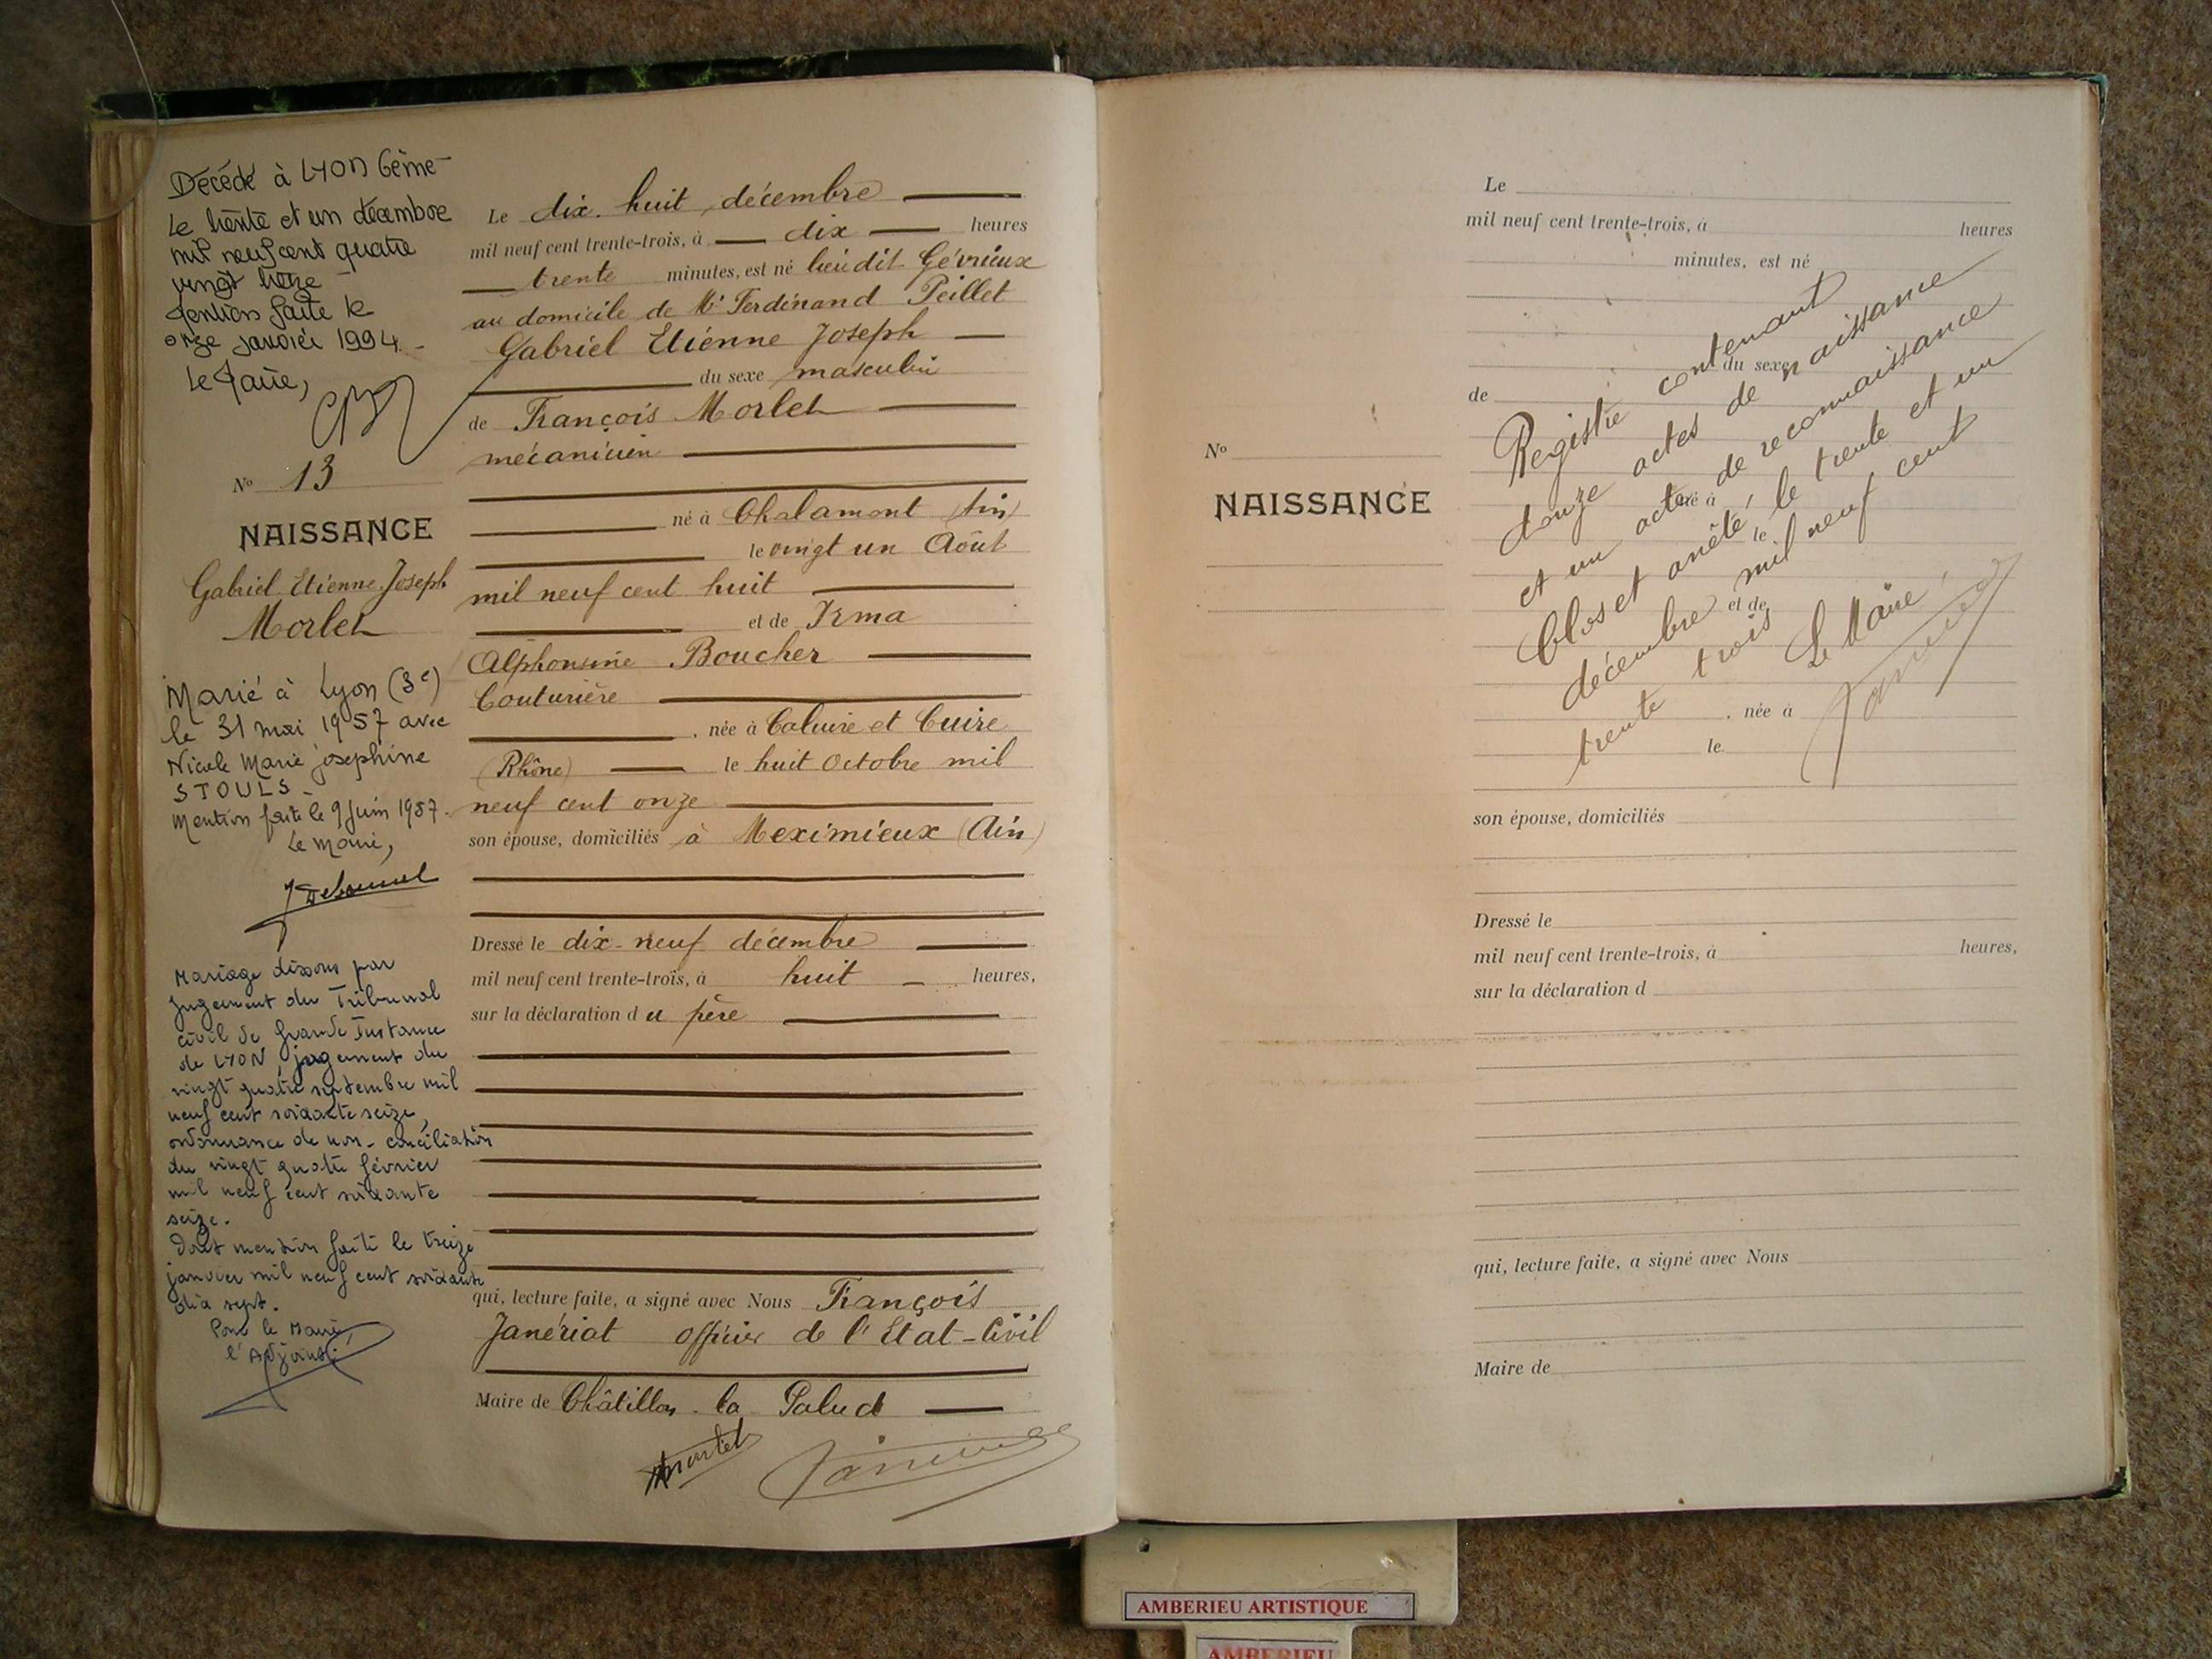 Décédé à LYON 6ème
Le trente et un décembre
mil neuf cent quatre
vingt treize
Mention faite le
onze janvier 1994.
Le Maire,
N° 13
NAISSANCE
Gabriel Etienne Joseph
Morlet
Marié à Lyon (3e)
le 31 mai 1957 avec
Nicole Marie Josephine
STOULS.
Mention faite le 9 Juin 1957.
Le Maire,
Mariage dissous par
jugement du Tribunal
civil de Grande Instance
de LYON, jugement du
vingt quatre septembre mil
neuf cent soixante seize,
ordonnance de non-conciliation
du vingt quatre février
mil neuf cent soixante
seize.
Dont mention faite le treize
janvier mil neuf cent soixante
dix sept.
Pour le Maire,
l'Adjoint:
Le dix-huit décembre
mil neuf cent trente-trois, à dix heures
trente minutes, est né lieu dit Gévrieux
au domicile de Mr Ferdinand Peillet
Gabriel Etienne Joseph
du sexe masculin
de François Morlet
mécanicien
né à Chalamont (Ain)
le vingt un Août
mil neuf cent huit
et de Irma
Alphonsine Boucher
Couturière
, née à Caluire et Cuire
(Rhône) le huit Octobre mil
neuf cent onze
son épouse, domiciliés à Meximieux (Ain)
Dressé le dix-neuf décembre
mil neuf cent trente-trois, à huit heures,
sur la déclaration du père
qui, lecture faite, a signé avec Nous François
Janériat officier de l'Etat-Civil
Maire de Châtillon-la-Palud
Morlet
N°
NAISSANCE
Le
mil neuf cent trente-trois, à heures
minutes, est né
du sexe
de
né à
le
et de
, née à
le
son épouse, domiciliés
Dressé le
mil neuf cent trente-trois, à heures,
sur la déclaration d
qui, lecture faite, a signé avec Nous
Maire de
Registre contenant
douze actes de naissance
et un acte de reconnaissance
Clos et arrêté, le trente et un
décembre mil neuf cent
trente trois
Le Maire,
AMBERIEU ARTISTIQUE
AMBERIEU